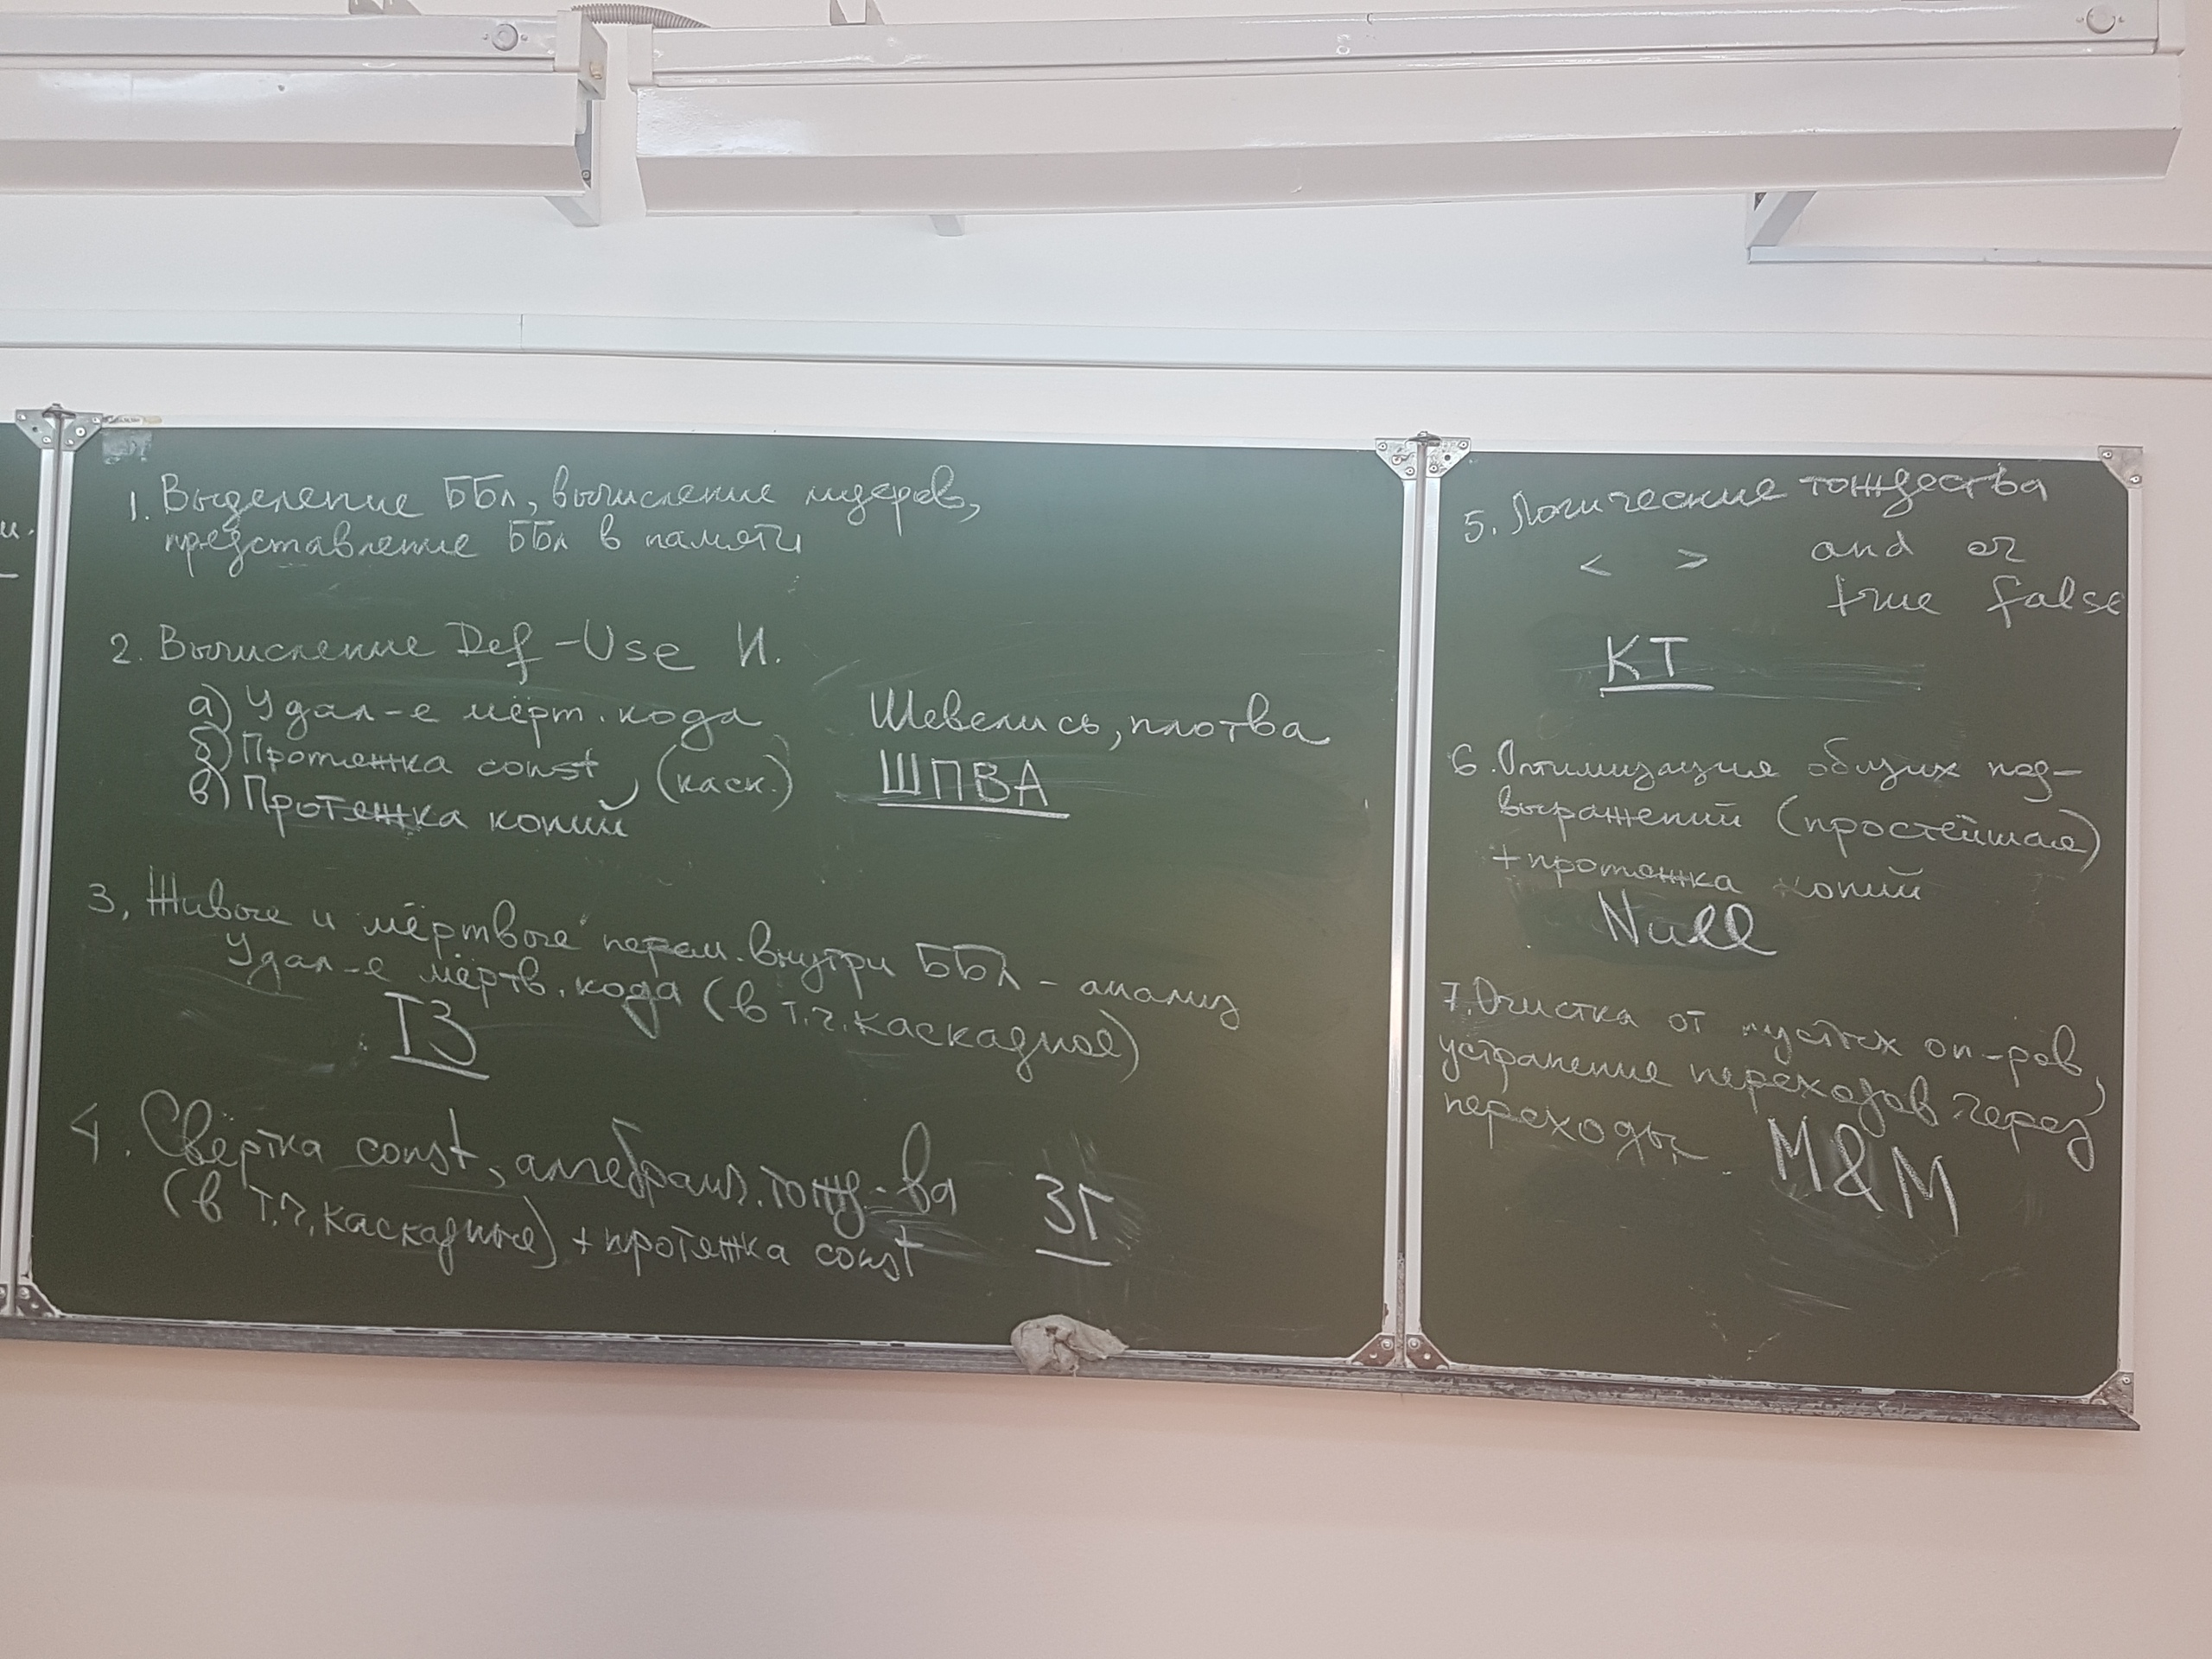 1. Выделение ББл, вычисление лидеров,
представление ББл в памяти
2. Вычисление Def-Use И.
а) Удал-е мёрт. кода
б) Протяжка const, (каск.)
в) Протяжка копий
Шевелись, плотва
ШПВА
3. Живые и мёртвые перем. внутри ББл - анализ
Удал-е мёртв. кода (в т.ч. каскадное)
ТЗ
4. Свёртка const, алгебраич. тожд-ва
(в т.ч. каскадные) + протяжка const
ЗГ
5. Логические тождества
< > and or
true false
КТ
6. Оптимизация общих под-
выражений (простейшая)
+ протяжка копий
Null
7. Очистка от пустых оп-ров,
устранение переходов через
переходы
M&M